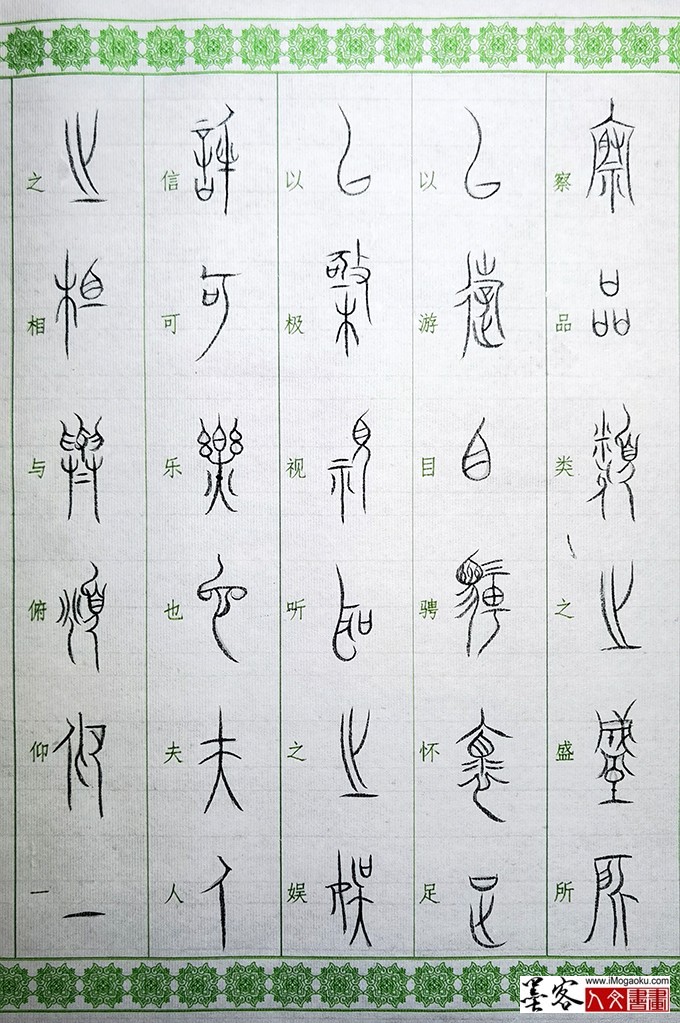 察品类之盛所
以游目骋怀足
以极视听之娱
信可乐也夫人
之相与俯仰一
墨客
www.iMogaoku.com
人文書畫